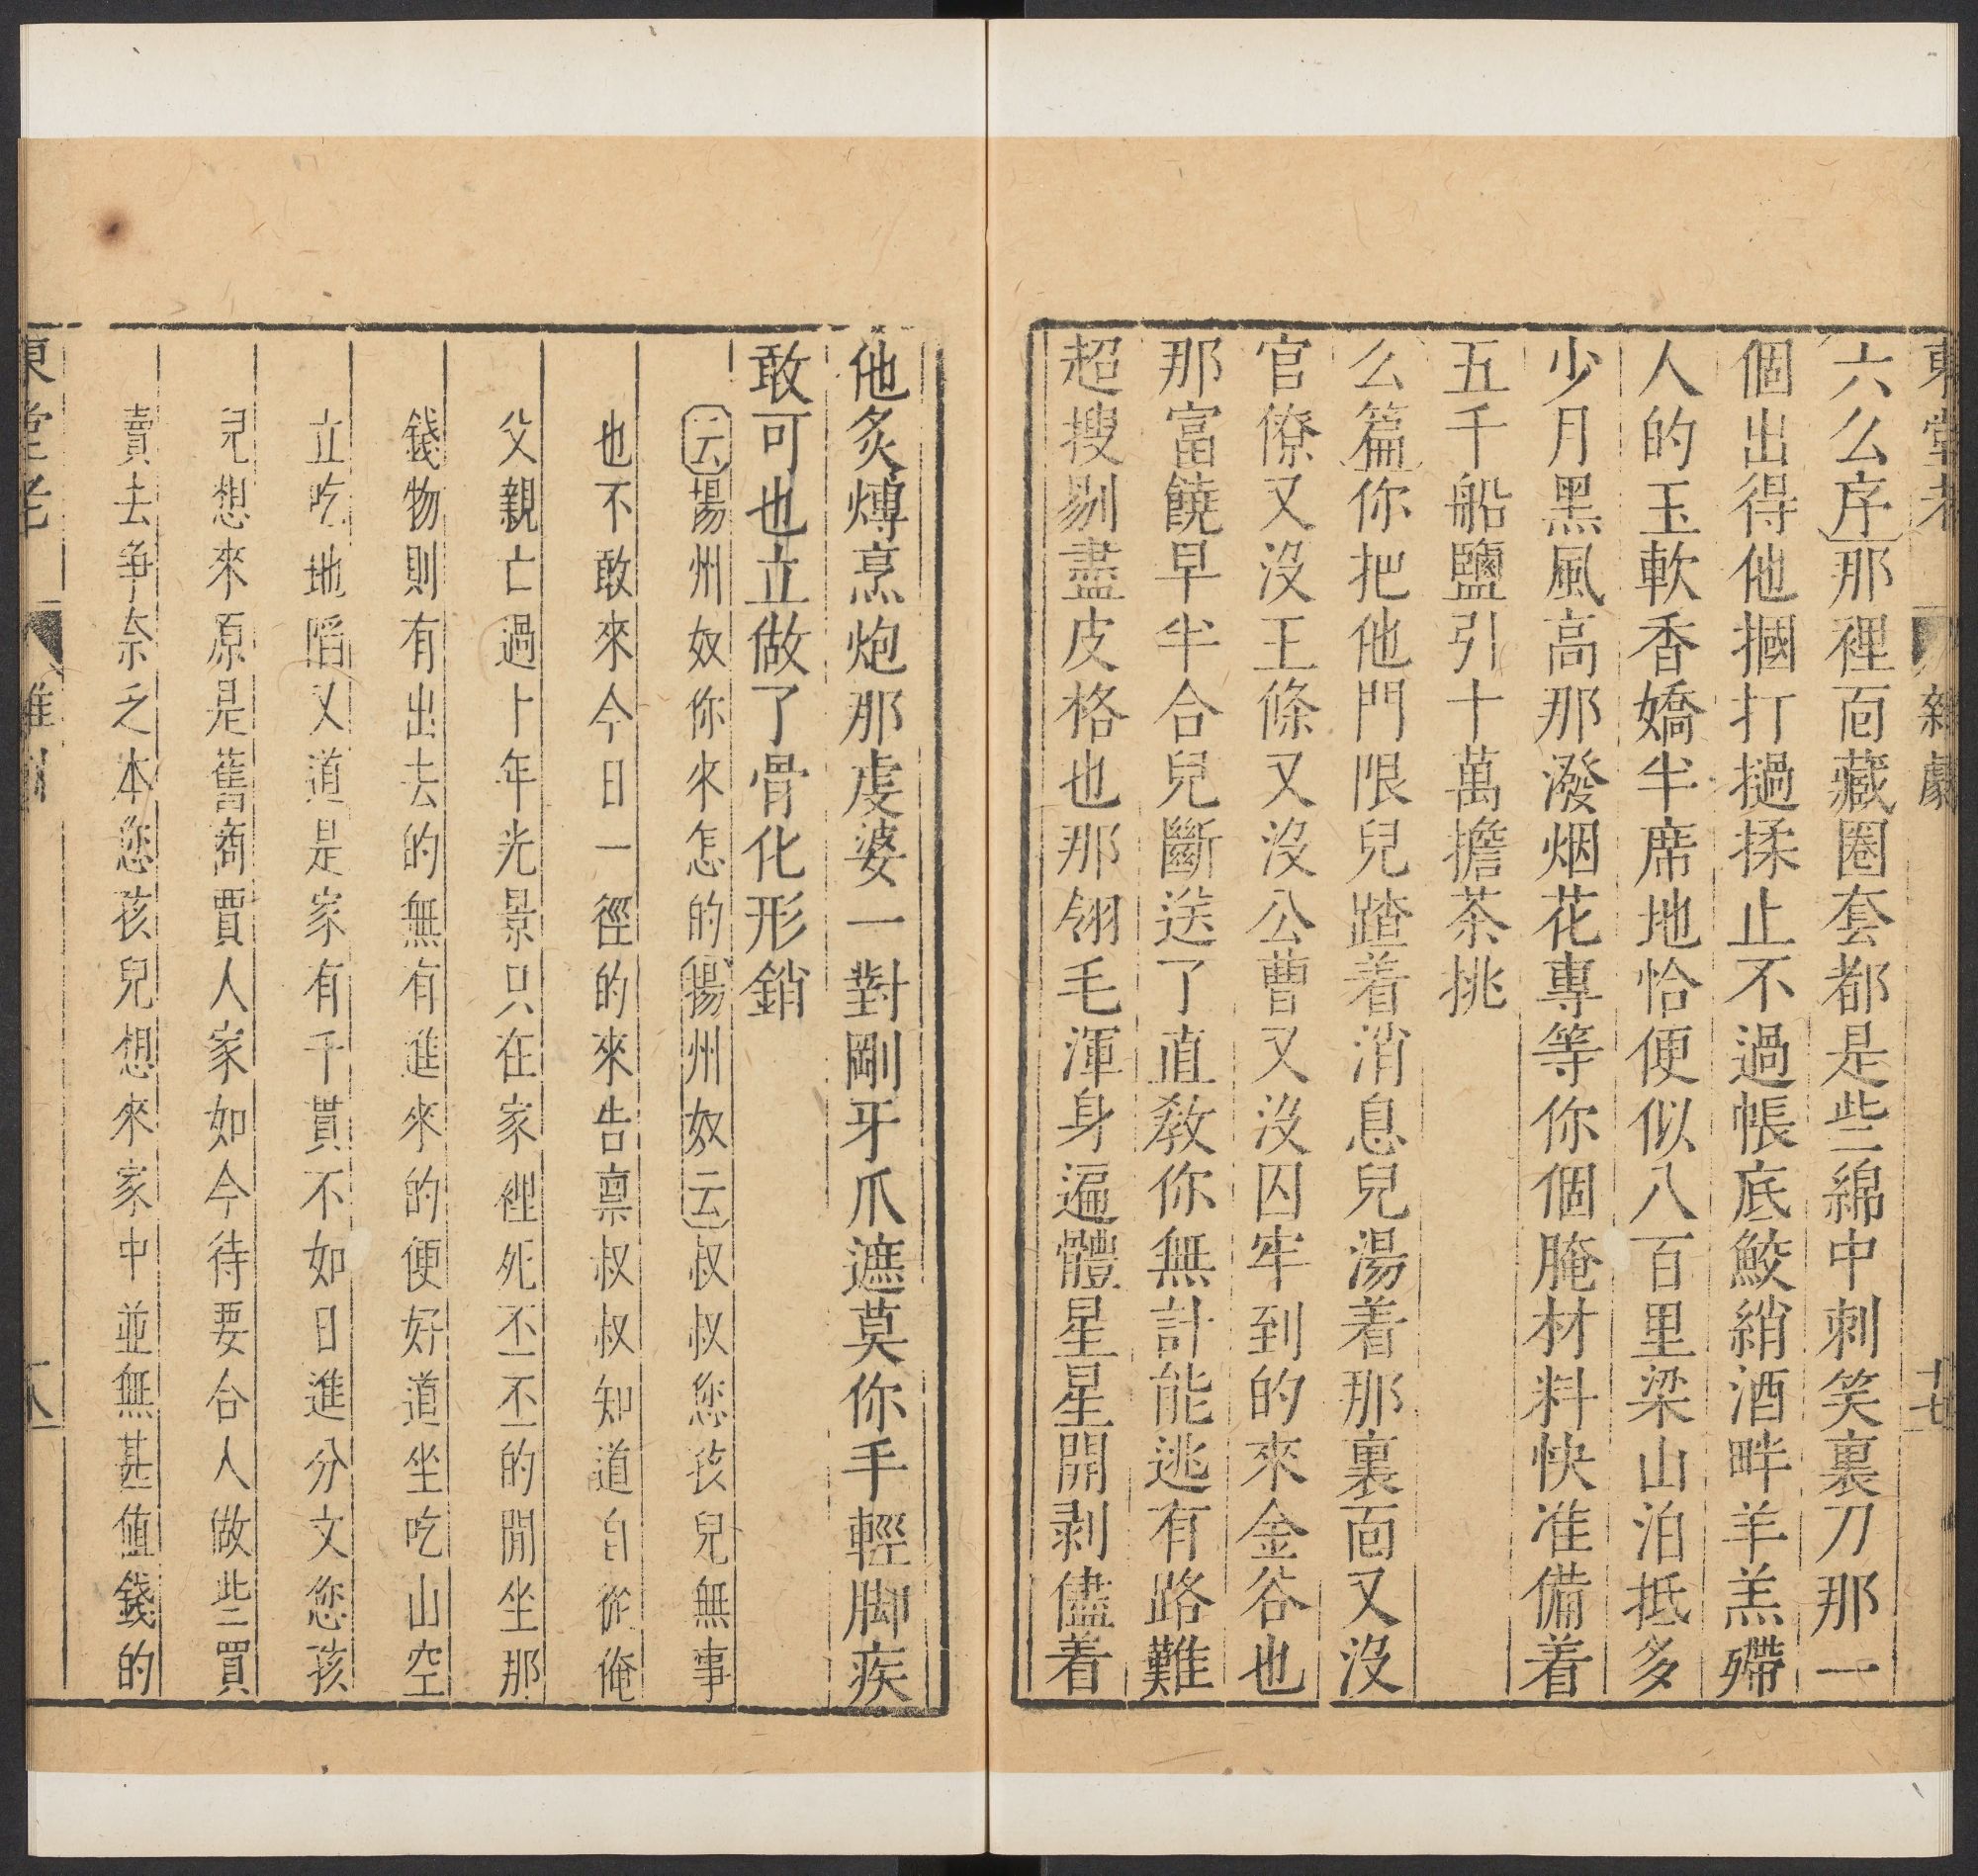 東堂老 雜劇 十七
六么序那裡面藏圈套都是些綿中刺笑裏刀那一
個出得他摑打撾揉止不過帳底鮫綃酒畔羊羔殢
人的玉軟香嬌半席地恰便似八百里梁山泊抵多
少月黑風高那潑烟花專等你個腌材料快准備着
五千船鹽引十萬擔茶挑
么篇你把他門限兒蹅着消息兒湯着那裏面又沒
官僚又沒王條又沒公曹又沒囚牢到的來金谷也
那富饒早半合兒斷送了直教你無計能逃有路難
超搜剔盡皮格也那翎毛渾身遍體星星開剥儘着
他炙煿烹炮那虔婆一對剛牙爪遮莫你手輕脚疾
敢可也立做了骨化形銷
云揚州奴你來怎的揚州奴云叔叔您孩兒無事
也不敢來今日一徑的來告禀叔叔知道自從俺
父親亡過十年光景只在家裡死丕丕的閒坐那
錢物則有出去的無有進來的便好道坐吃山空
立吃地陷又道是家有千貫不如日進分文您孩
兒想來原是舊商賈人家如今待要合人做些買
賣去争奈乏本您孩兒想來家中並無甚值錢的
東堂老 雜劇 十八